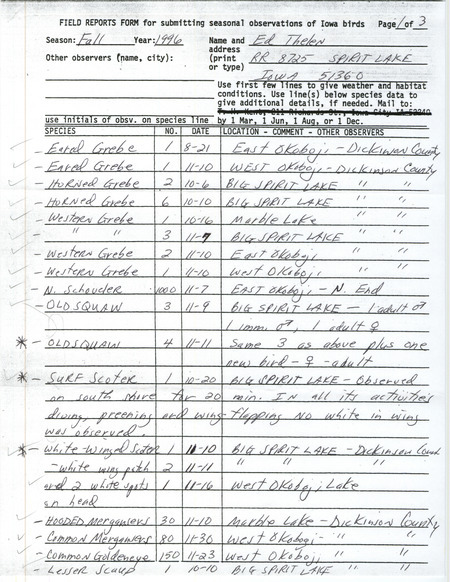 FIELD REPORTS FORM for submitting seasonal observations of Iowa birds Page 1 of 3
Season: Fall Year: 1996 Name and Ed Thelen
address
Other observers (name, city): (print RR 8725 SPIRIT LAKE
or type) Iowa 51360
Use first few lines to give weather and habitat
conditions. Use line(s) below species data to
give additional details, if needed. Mail to:
use initials of obsv. on species line by 1 Mar, 1 Jun, 1 Aug, or 1 Dec.
SPECIES NO. DATE LOCATION - COMMENT - OTHER OBSERVERS
- Eared Grebe 1 8-21 East Okoboji - Dickinson County
- Eared Grebe 1 11-10 WEST Okoboji - Dickinson County
- HORNED Grebe 2 10-6 BIG SPIRIT LAKE " "
- HORNED Grebe 6 10-10 BIG SPIRIT LAKE " "
- Western Grebe 1 10-16 Marble Lake " "
- " " 3 11-7 BIG SPIRIT LAKE " "
- Western Grebe 2 11-10 East Okoboji " "
- Western Grebe 1 11-10 West Okoboji " "
- N. Shoveler 1000 11-7 EAST Okoboji - N. End
- OLDSQUAW 3 11-9 BIG SPIRIT LAKE - 1 adult ♂
1 imm. ♂, 1 adult ♀
* - OLDSQUAW 4 11-11 Same 3 as above plus one
new bird - ♀ - adult
* - SURF Scoter 1 10-20 BIG SPIRIT LAKE - Observed
on south shore for 20 min. IN all its activities
diving, preening and wing-flapping NO white in wing
was observed.
* - White-Winged Scoter 1 11-10 BIG SPIRIT LAKE - Dickinson Count
- white wing patch 2 11-11 " " " "
and 2 white spots 1 11-16 West Okoboji Lake
on head
- HOODED Mergansers 30 11-10 Marble Lake - Dickinson County
- Common Mergansers 80 11-30 West Okoboji - " "
- Common Goldeneye 150 11-23 West Okoboji " "
- Lesser Scaup 1 10-10 BIG SPIRIT LAKE " "